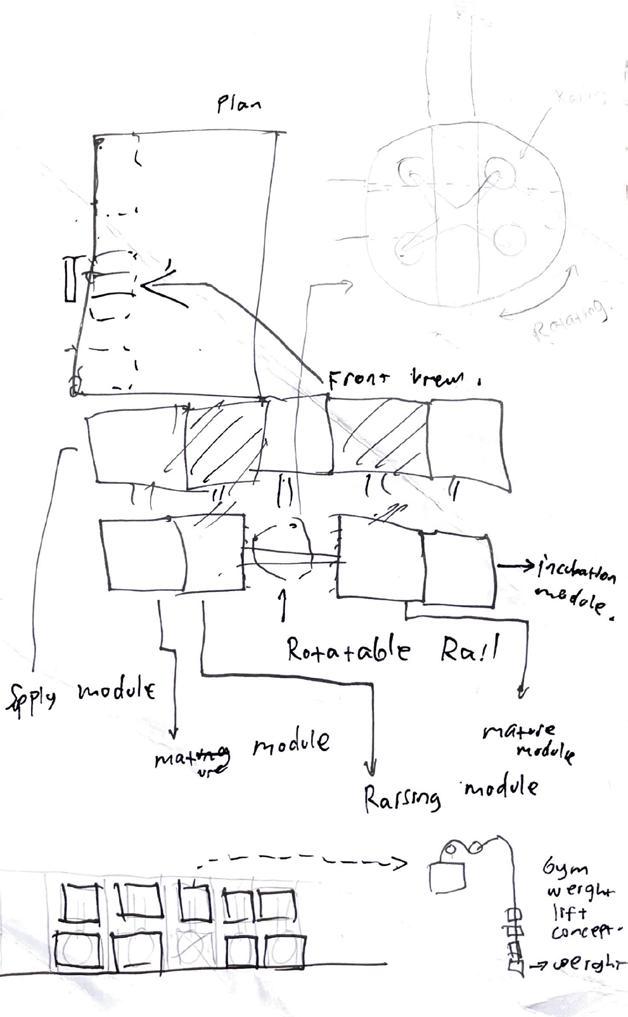 Plan
Rotating.
Front brew.
incubation
module.
Rotatable Rail
Spply module
mature
module
module
Raising module
Gym
weight
lift
concept.
weight